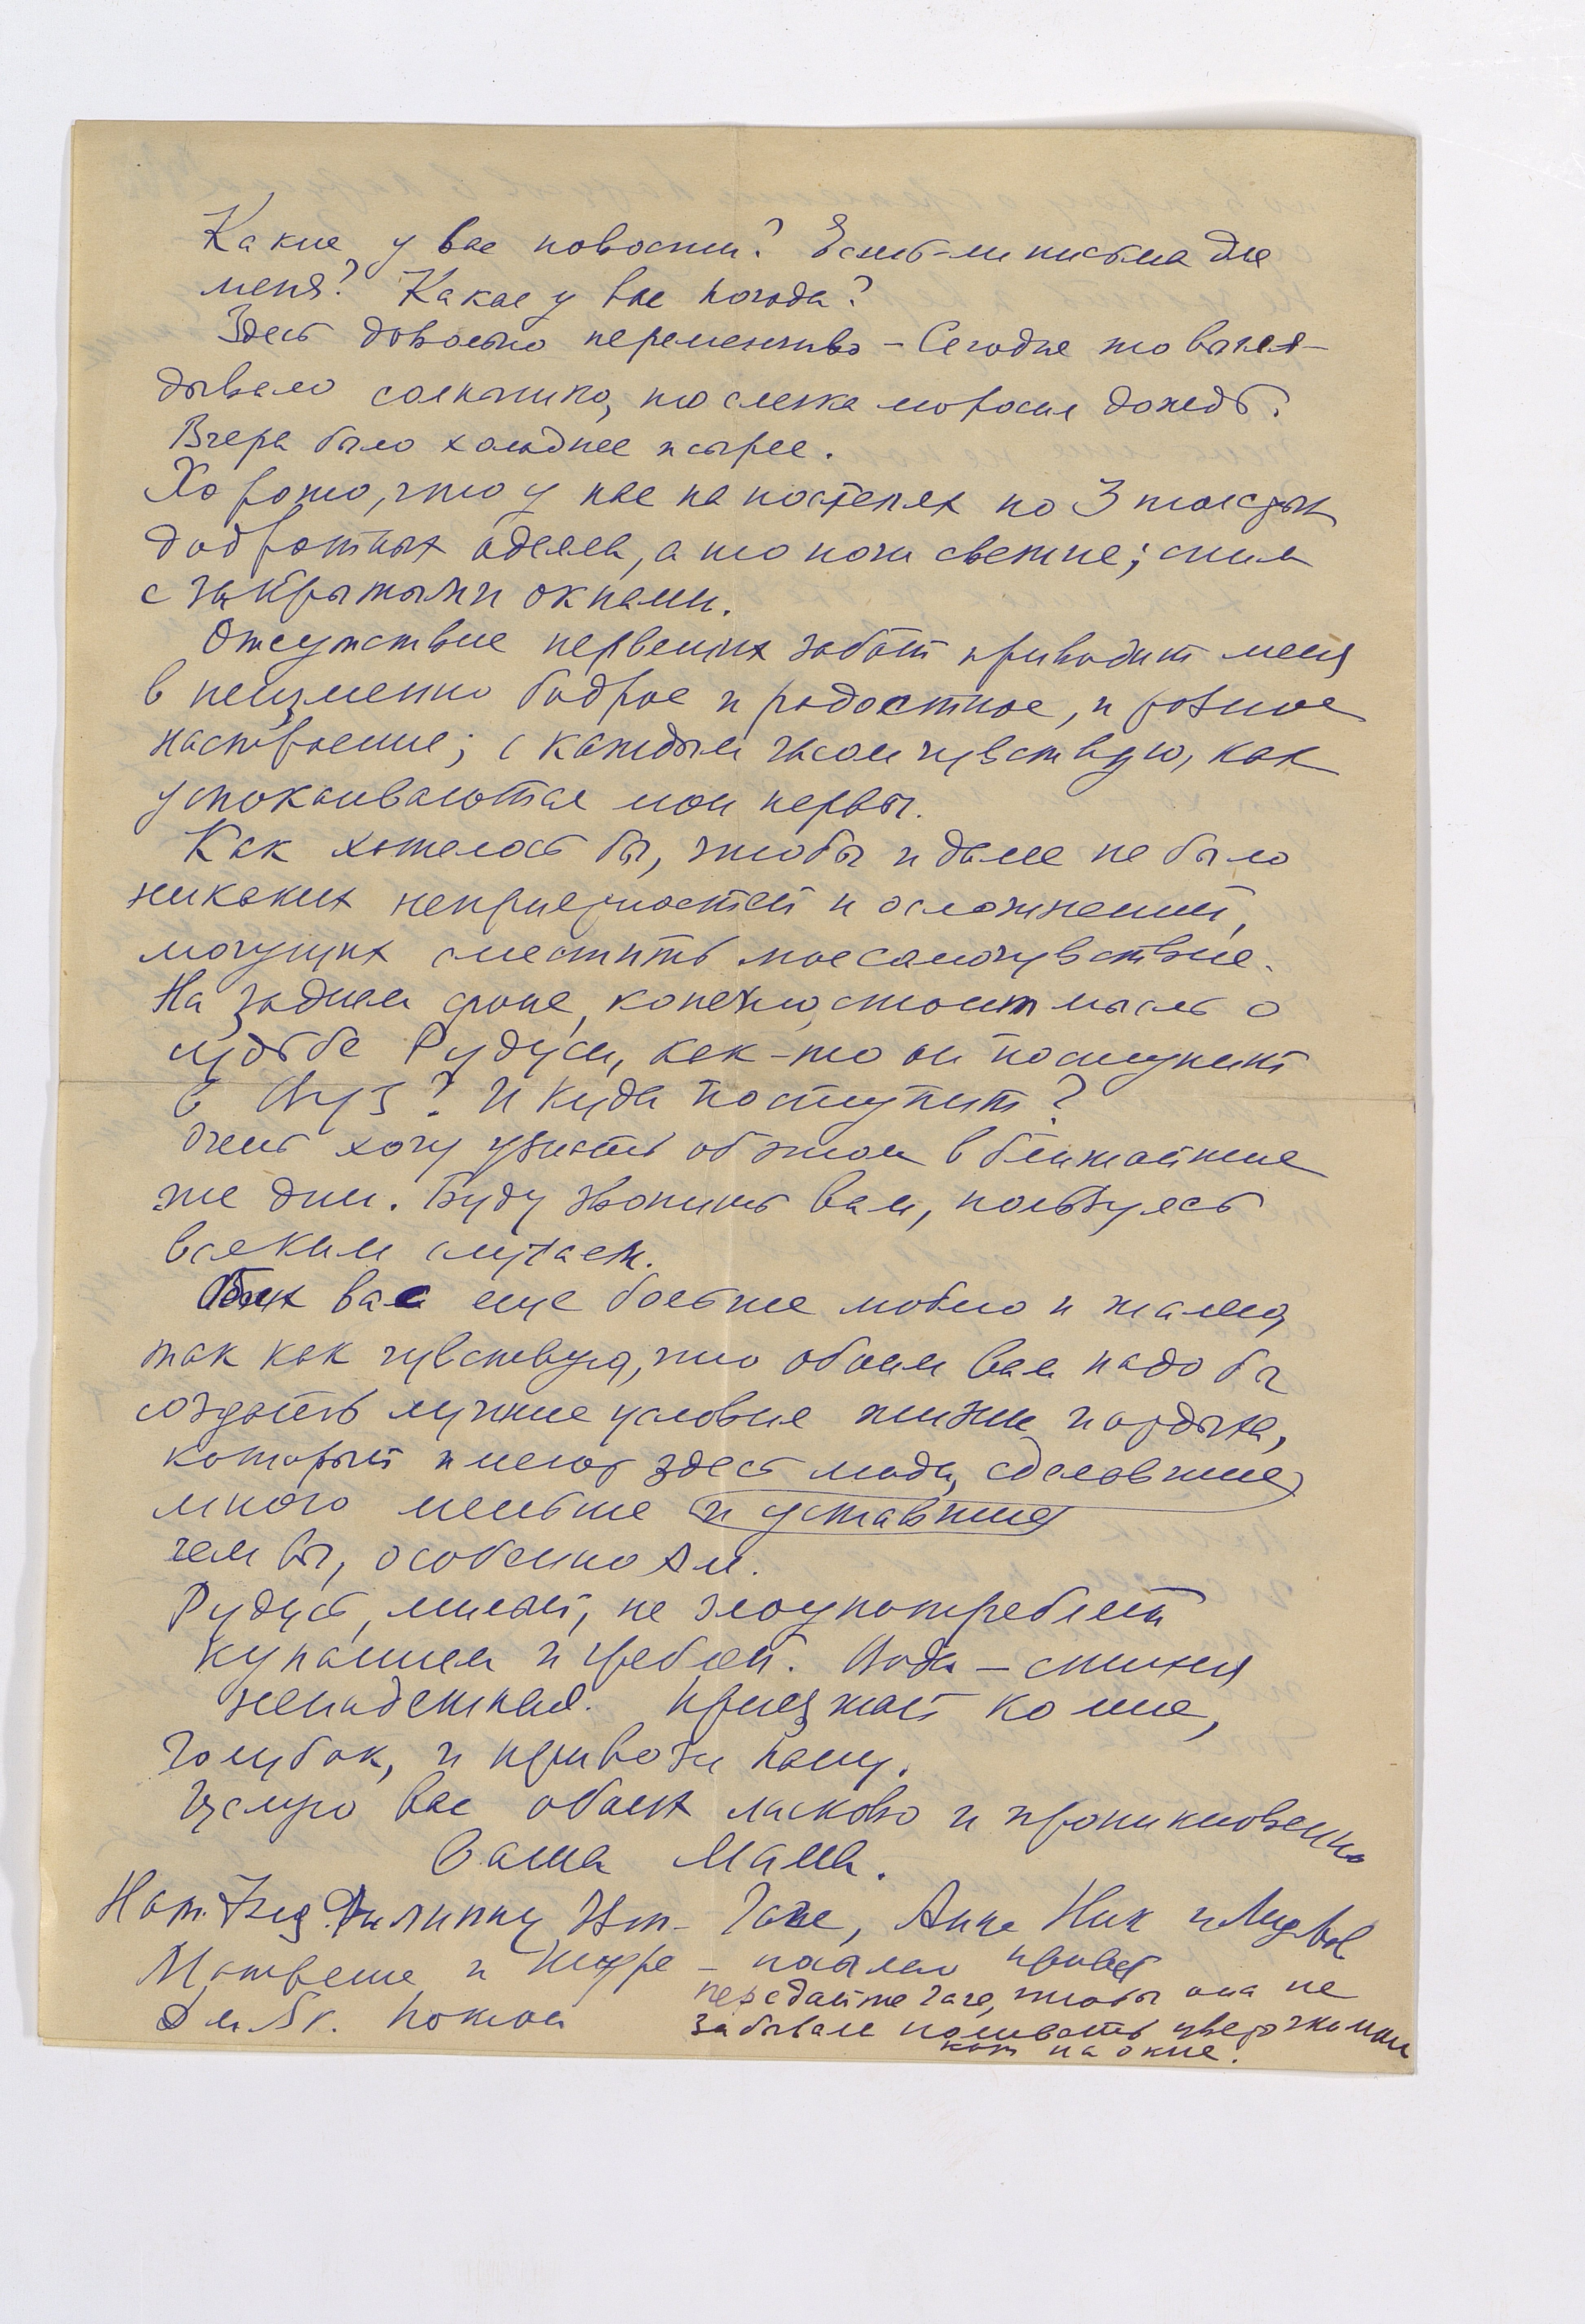 Какие у вас новости? Есть-ли письма для
меня? Какая у вас погода?
Здесь довольно переменчиво – Сегодня то выгля-
дывало солнышко, то слегка моросил дождь.
Вчера было холоднее и сырее.
Хорошо, что у нас на постелях по 3 толстых
добротных одеяла, а то ночи свежие; спим
с закрытыми окнами.
Отсутствие нервных забот приводит меня
в неизменно бодрое и радостное, и ровное
настроение; с каждым часом чувствую, как
успокаиваются мои нервы.
Как хотелось бы, чтобы и далее не было
никаких неприятностей и осложнений,
могущих сместить мое самочувствие.
На заднем фоне, конечно, стоит мысль о
судьбе Рудуси, как-то он поступит
в Вуз? И куда поступит?
Очень хочу узнать об этом в ближайшие
же дни. Буду звонить вам, пользуясь
всяким случаем.
Обоих вас еще больше люблю и жалею,
так как чувствую, что обоим вам надо бы
создать лучшие условия жизни и отдыха,
который имеют здесь люди, сделавшие
много меньше и уставшие
чем вы, особенно Ал.
Рудусь, милый, не злоупотребляй
купанием и греблей. Вода – стихия
ненадежная. Приезжай ко мне,
голубок, и привози папу.
Целую вас обоих ласково и проникновенно
Ваша Мама.
Нат. Филиппу, Гале, Анне Ник и
Матреше и Шуре – посылаю привет
передайте Гаге, чтобы она не
забывала поливать цветочки мои
на окне.